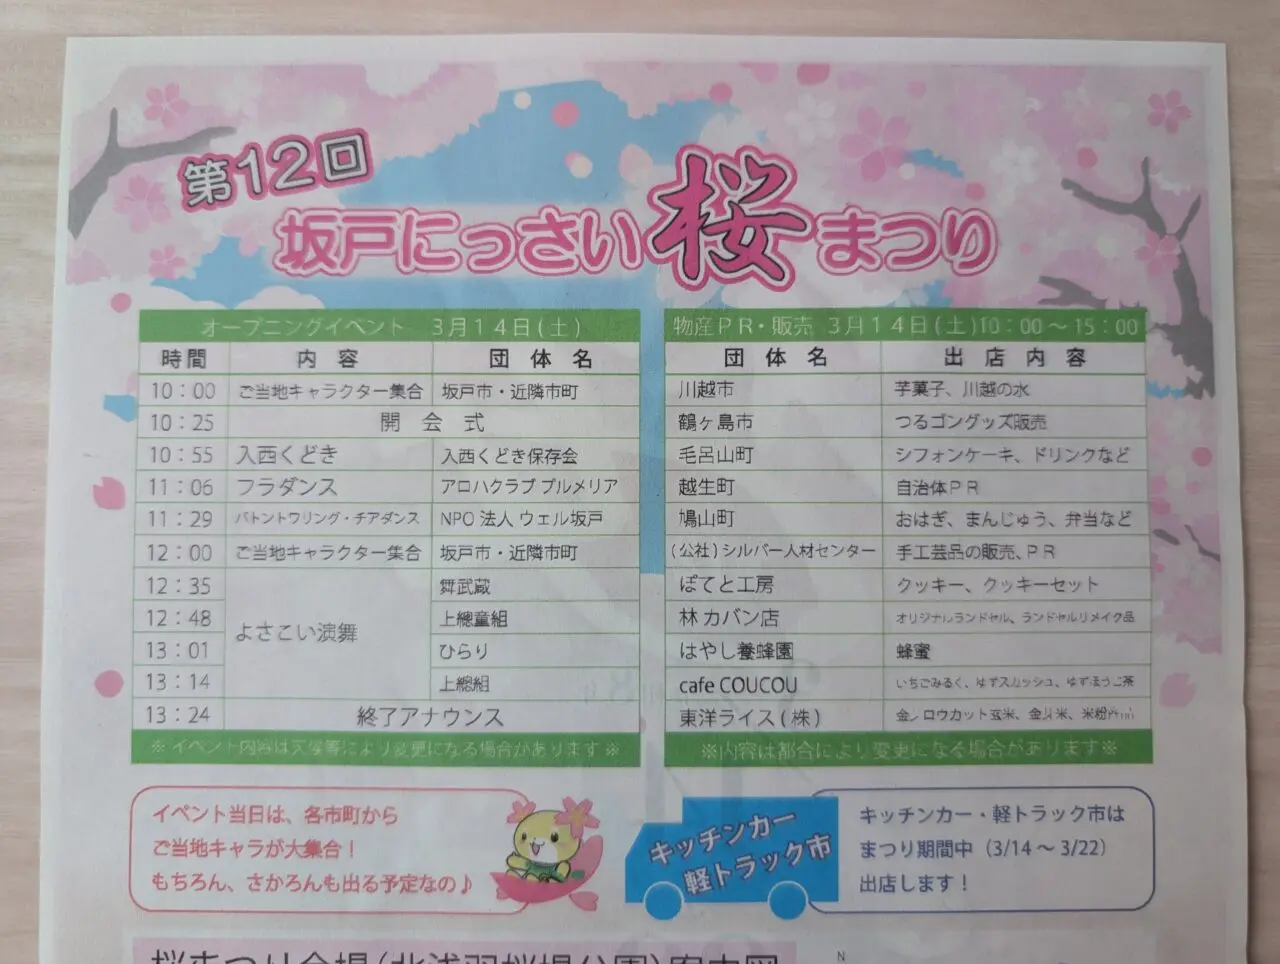 第12回
坂戸にっさい桜まつり
オープニングイベント 3月14日(土)
時間 内容 団体名
10：00 ご当地キャラクター集合 坂戸市・近隣市町
10：25 開会式
10：55 入西くどき 入西くどき保存会
11：06 フラダンス アロハクラブ プルメリア
11：29 バトントワリング・チアダンス NPO 法人 ウェル坂戸
12：00 ご当地キャラクター集合 坂戸市・近隣市町
12：35 よさこい演舞 舞武蔵
12：48 上總童組
13：01 ひらり
13：14 上總組
13：24 終了アナウンス
※イベント内容は天候等により変更になる場合があります※
物産PR・販売 3月14日(土)10：00～15：00
団体名 出店内容
川越市 芋菓子、川越の水
鶴ヶ島市 つるゴングッズ販売
毛呂山町 シフォンケーキ、ドリンクなど
越生町 自治体PR
鳩山町 おはぎ、まんじゅう、弁当など
(公社)シルバー人材センター 手工芸品の販売、PR
ぽてと工房 クッキー、クッキーセット
林カバン店 オリジナルランドセル、ランドセルリメイク品
はやし養蜂園 蜂蜜
cafe COUCOU いちごみるく、ゆずスカッシュ、ゆずほうじ茶
東洋ライス(株) 金芽ロウカット玄米、金芽米、米粉
※内容は都合により変更になる場合があります※
イベント当日は、各市町から
ご当地キャラが大集合！
もちろん、さかろんも出る予定なの♪
キッチンカー
軽トラック市
キッチンカー・軽トラック市は
まつり期間中（3/14～3/22）
出店します！
桜まつり会場(北浅羽桜堤公園)案内図
N